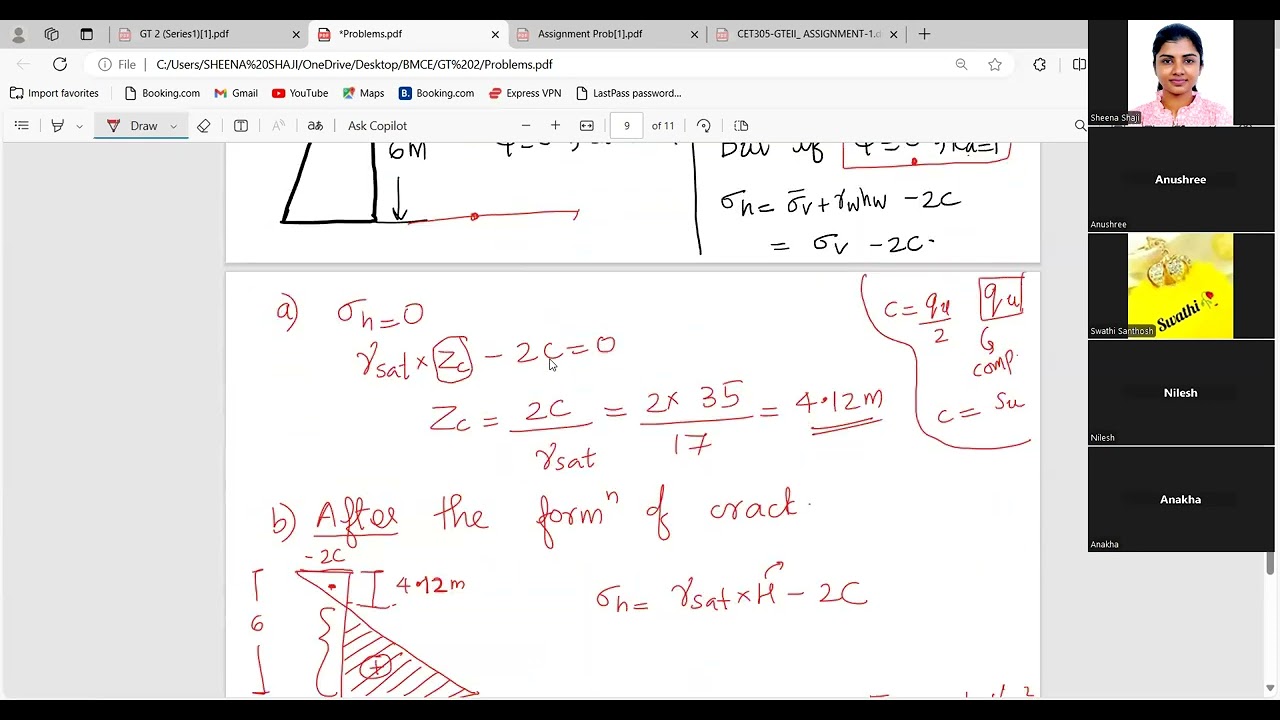 GT 2 (Series1)[1].pdf
*Problems.pdf
Assignment Prob[1].pdf
CET305-GTEII_ ASSIGNMENT-1.d
File
C:/Users/SHEENA%20SHAJI/OneDrive/Desktop/BMCE/GT%202/Problems.pdf
Import favorites
Booking.com
Gmail
YouTube
Maps
Booking.com
Express VPN
LastPass password...
Draw
Ask Copilot
9 of 11
6M
But if
σh = σ̄v + γw hw - 2C
= σv - 2C.
a) σh = 0
γsat × Zc - 2C = 0
Zc = 2C/γsat = 2 × 35/17 = 4.12m
C = qu/2
qu
comp.
C = Su
b) After the formⁿ of crack.
-2C
4.12m
6
σh = γsat × H - 2C
+
Sheena Shaji
Anushree
Anushree
Swathi
Swathi Santhosh
Nilesh
Nilesh
Anakha
Anakha